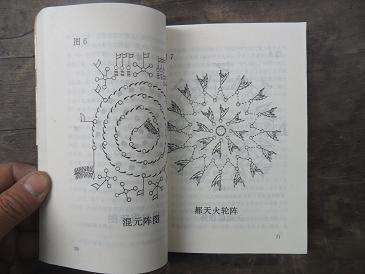 图6
7
混元阵图
都天火轮阵